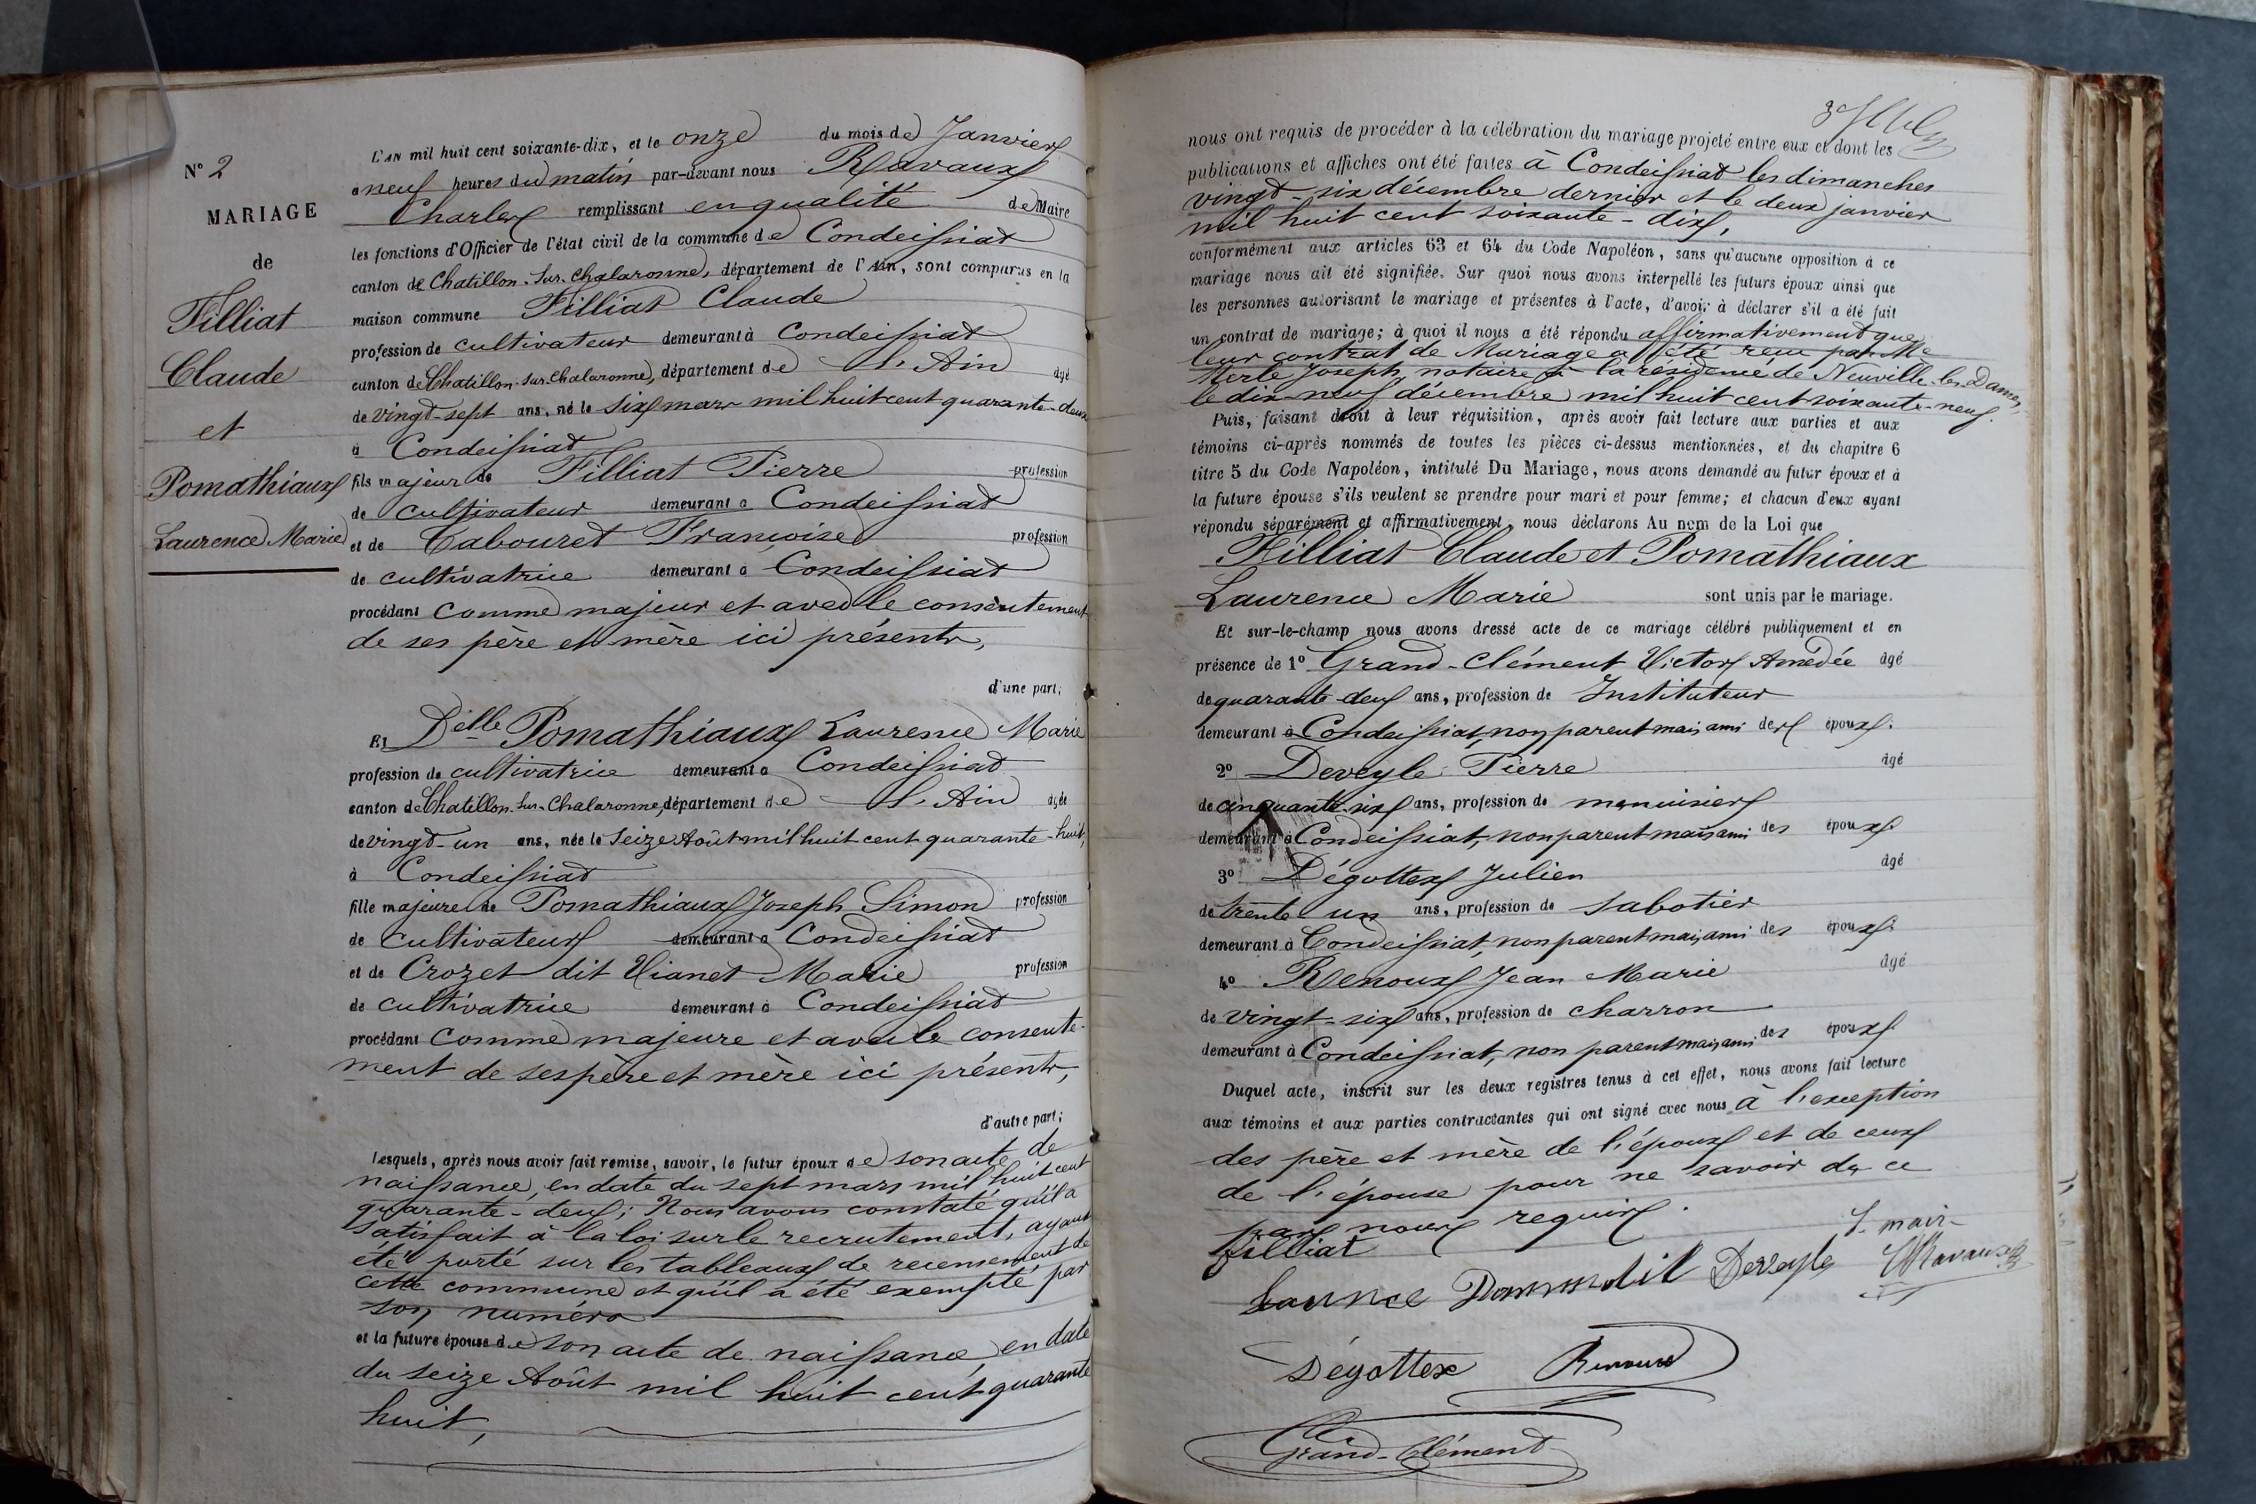 N° 2
MARIAGE
de
Filliat
Claude
et
Pomathiaux
Laurence Marie
L'AN mil huit cent soixante-dix, et le onze du mois de Janvier
a neuf heures du matin par-devant nous Ravaux
Charles remplissant en qualité de Maire
les fonctions d'Officier de l'état civil de la commune de Condeissiat
canton de Chatillon-sur-Chalaronne, département de l'Ain, sont comparus en la
maison commune Filliat Claude
profession de cultivateur demeurant à Condeissiat
canton de Chatillon-sur-Chalaronne, département de L'Ain âgé
de vingt-sept ans, né le six mars mil huit cent quarante-deux
à Condeissiat
fils majeur de Filliat Pierre profession
de cultivateur demeurant à Condeissiat
et de Cabouret Françoise profession
de cultivatrice demeurant à Condeissiat
procédant comme majeur et avec le consentement
de ses père et mère ici présents,
d'une part;
Et Delle Pomathiaux Laurence Marie
profession de cultivatrice demeurant à Condeissiat
canton de Chatillon-sur-Chalaronne, département de L'Ain âgée
de vingt-un ans, née le seize Août mil huit cent quarante-huit,
à Condeissiat
fille majeure de Pomathiaux Joseph Simon profession
de cultivateur demeurant à Condeissiat
et de Crozet dit Vianet Marie profession
de cultivatrice demeurant à Condeissiat
procédant comme majeure et avec le consente-
ment de ses père et mère ici présents,
d'autre part;
Lesquels, après nous avoir fait remise, savoir, le futur époux de son acte de
naissance, en date du sept mars mil huit cent
quarante-deux; Nous avons constaté qu'il a
satisfait à la loi sur le recrutement, ayant
été porté sur les tableaux de recensement de
cette commune et qu'il a été exempté par
son numéro
et la future épouse de son acte de naissance, en date
du seize Août mil huit cent quarante
huit,
nous ont requis de procéder à la célébration du mariage projeté entre eux et dont les
publications et affiches ont été faites à Condeissiat les dimanches
vingt-six décembre dernier et le deux janvier
mil huit cent soixante-dix,
conformément aux articles 63 et 64 du Code Napoléon, sans qu'aucune opposition à ce
mariage nous ait été signifiée. Sur quoi nous avons interpellé les futurs époux ainsi que
les personnes autorisant le mariage et présentes à l'acte, d'avoir à déclarer s'il a été fait
un contrat de mariage; à quoi il nous a été répondu affirmativement que
leur contrat de Mariage a été reçu par Me
Merle Joseph, notaire à la résidence de Neuville-les-Dames,
le dix-neuf décembre mil huit cent soixante-neuf.
Puis, faisant droit à leur réquisition, après avoir fait lecture aux parties et aux
témoins ci-après nommés de toutes les pièces ci-dessus mentionnées, et du chapitre 6
titre 5 du Code Napoléon, intitulé Du Mariage, nous avons demandé au futur époux et à
la future épouse s'ils veulent se prendre pour mari et pour femme; et chacun d'eux ayant
répondu séparément et affirmativement, nous déclarons Au nom de la Loi que
Filliat Claude et Pomathiaux
Laurence Marie sont unis par le mariage.
Et sur-le-champ nous avons dressé acte de ce mariage célébré publiquement et en
présence de 1° Grand-Clément Victor Amédée âgé
de quarante-deux ans, profession de Instituteur
demeurant à Condeissiat, non parent mais ami des époux.
2° Deveyle Pierre âgé
de cinquante-six ans, profession de menuisier
demeurant à Condeissiat, non parent mais ami des époux.
3° Dégottex Julien âgé
de trente un ans, profession de sabotier
demeurant à Condeissiat, non parent mais ami des époux.
4° Renoux Jean Marie âgé
de vingt-six ans, profession de charron
demeurant à Condeissiat, non parent mais ami des époux.
Duquel acte, inscrit sur les deux registres tenus à cet effet, nous avons fait lecture
aux témoins et aux parties contractantes qui ont signé avec nous à l'exception
des père et mère de l'époux et de ceux
de l'épouse pour ne savoir de ce
par nous requis.
filliat
Deveyle
Dégottex Renoux
Grand-Clément